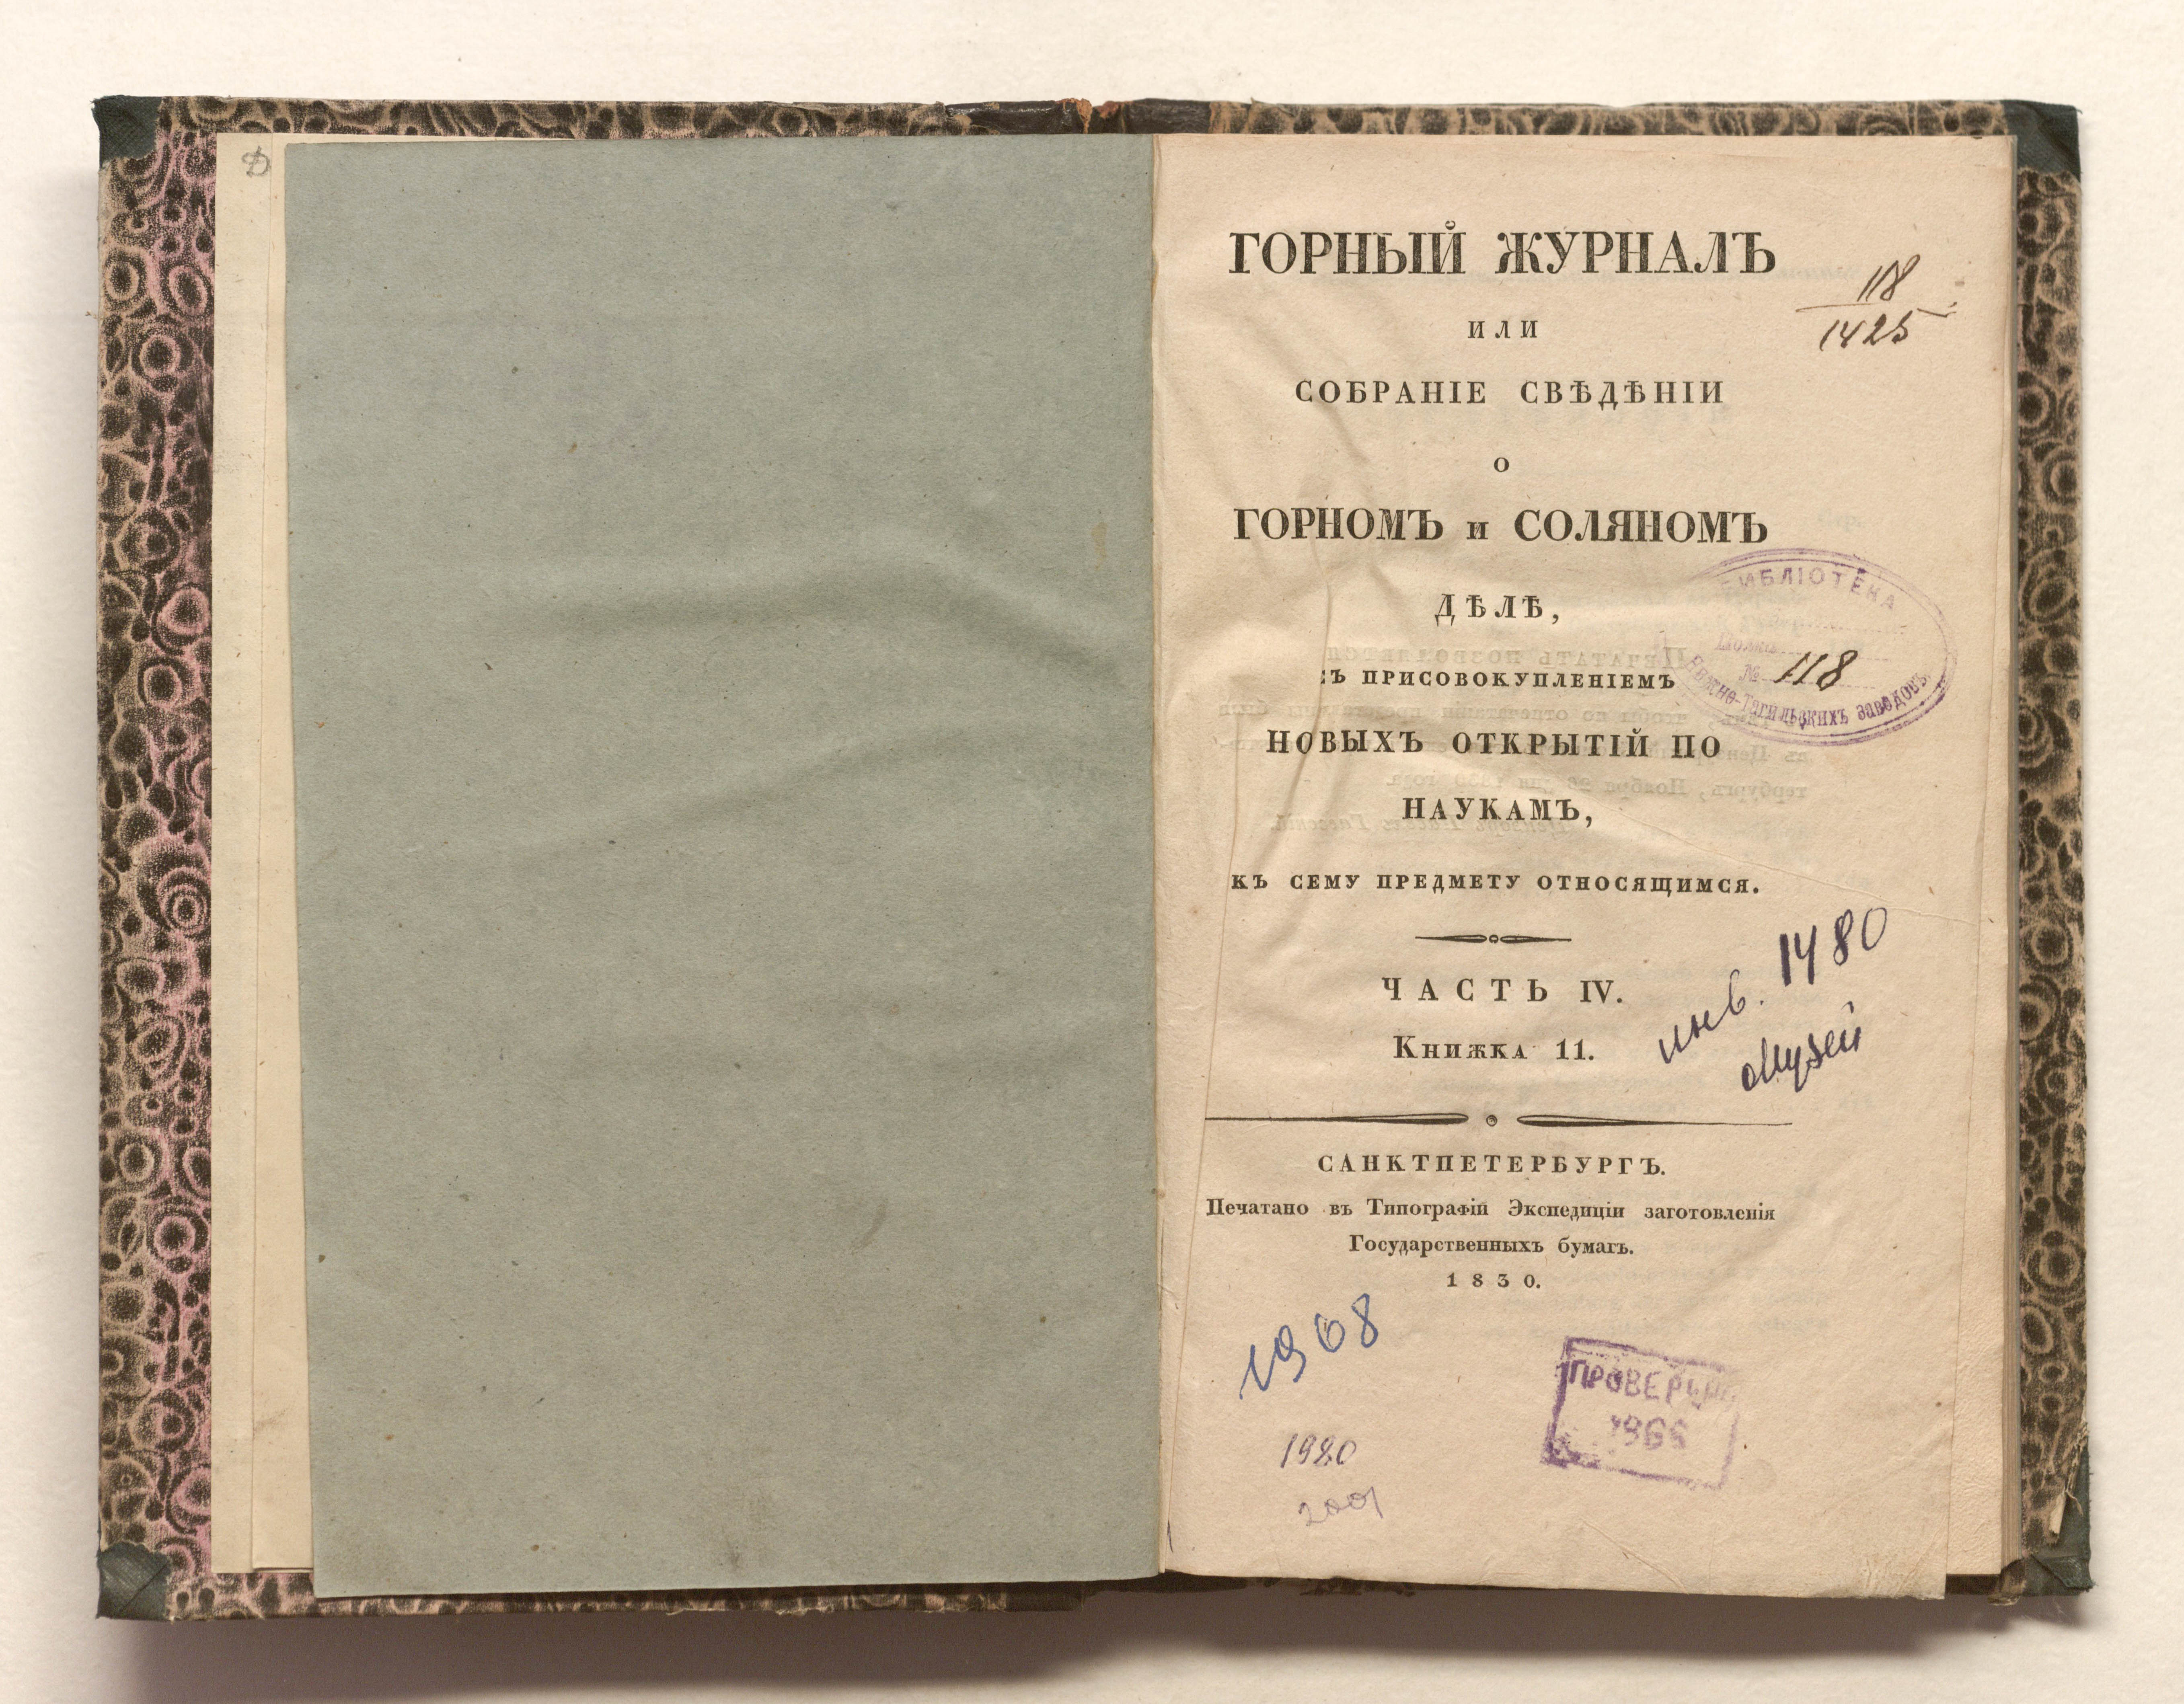 ГОРНЫЙ ЖУРНАЛЪ
118
1425
ИЛИ
СОБРАНІЕ СВѢДѢНІИ
О
ГОРНОМЪ и СОЛЯНОМЪ
БИБЛІОТЕКА
ДѢЛѢ,
№ 118
Нижне-Тагильскихъ заводовъ
СЪ ПРИСОВОКУПЛЕНІЕМЪ
НОВЫХЪ ОТКРЫТІЙ ПО
НАУКАМЪ,
КЪ СЕМУ ПРЕДМЕТУ ОТНОСЯЩИМСЯ.
ЧАСТЬ IV.
инв. 1480
Книжка 11.
Музей
САНКТПЕТЕРБУРГЪ.
Печатано въ Типографіи Экспедиціи заготовленія
Государственныхъ бумагъ.
1830.
1968
ПРОВЕРЕНО
1980
2001